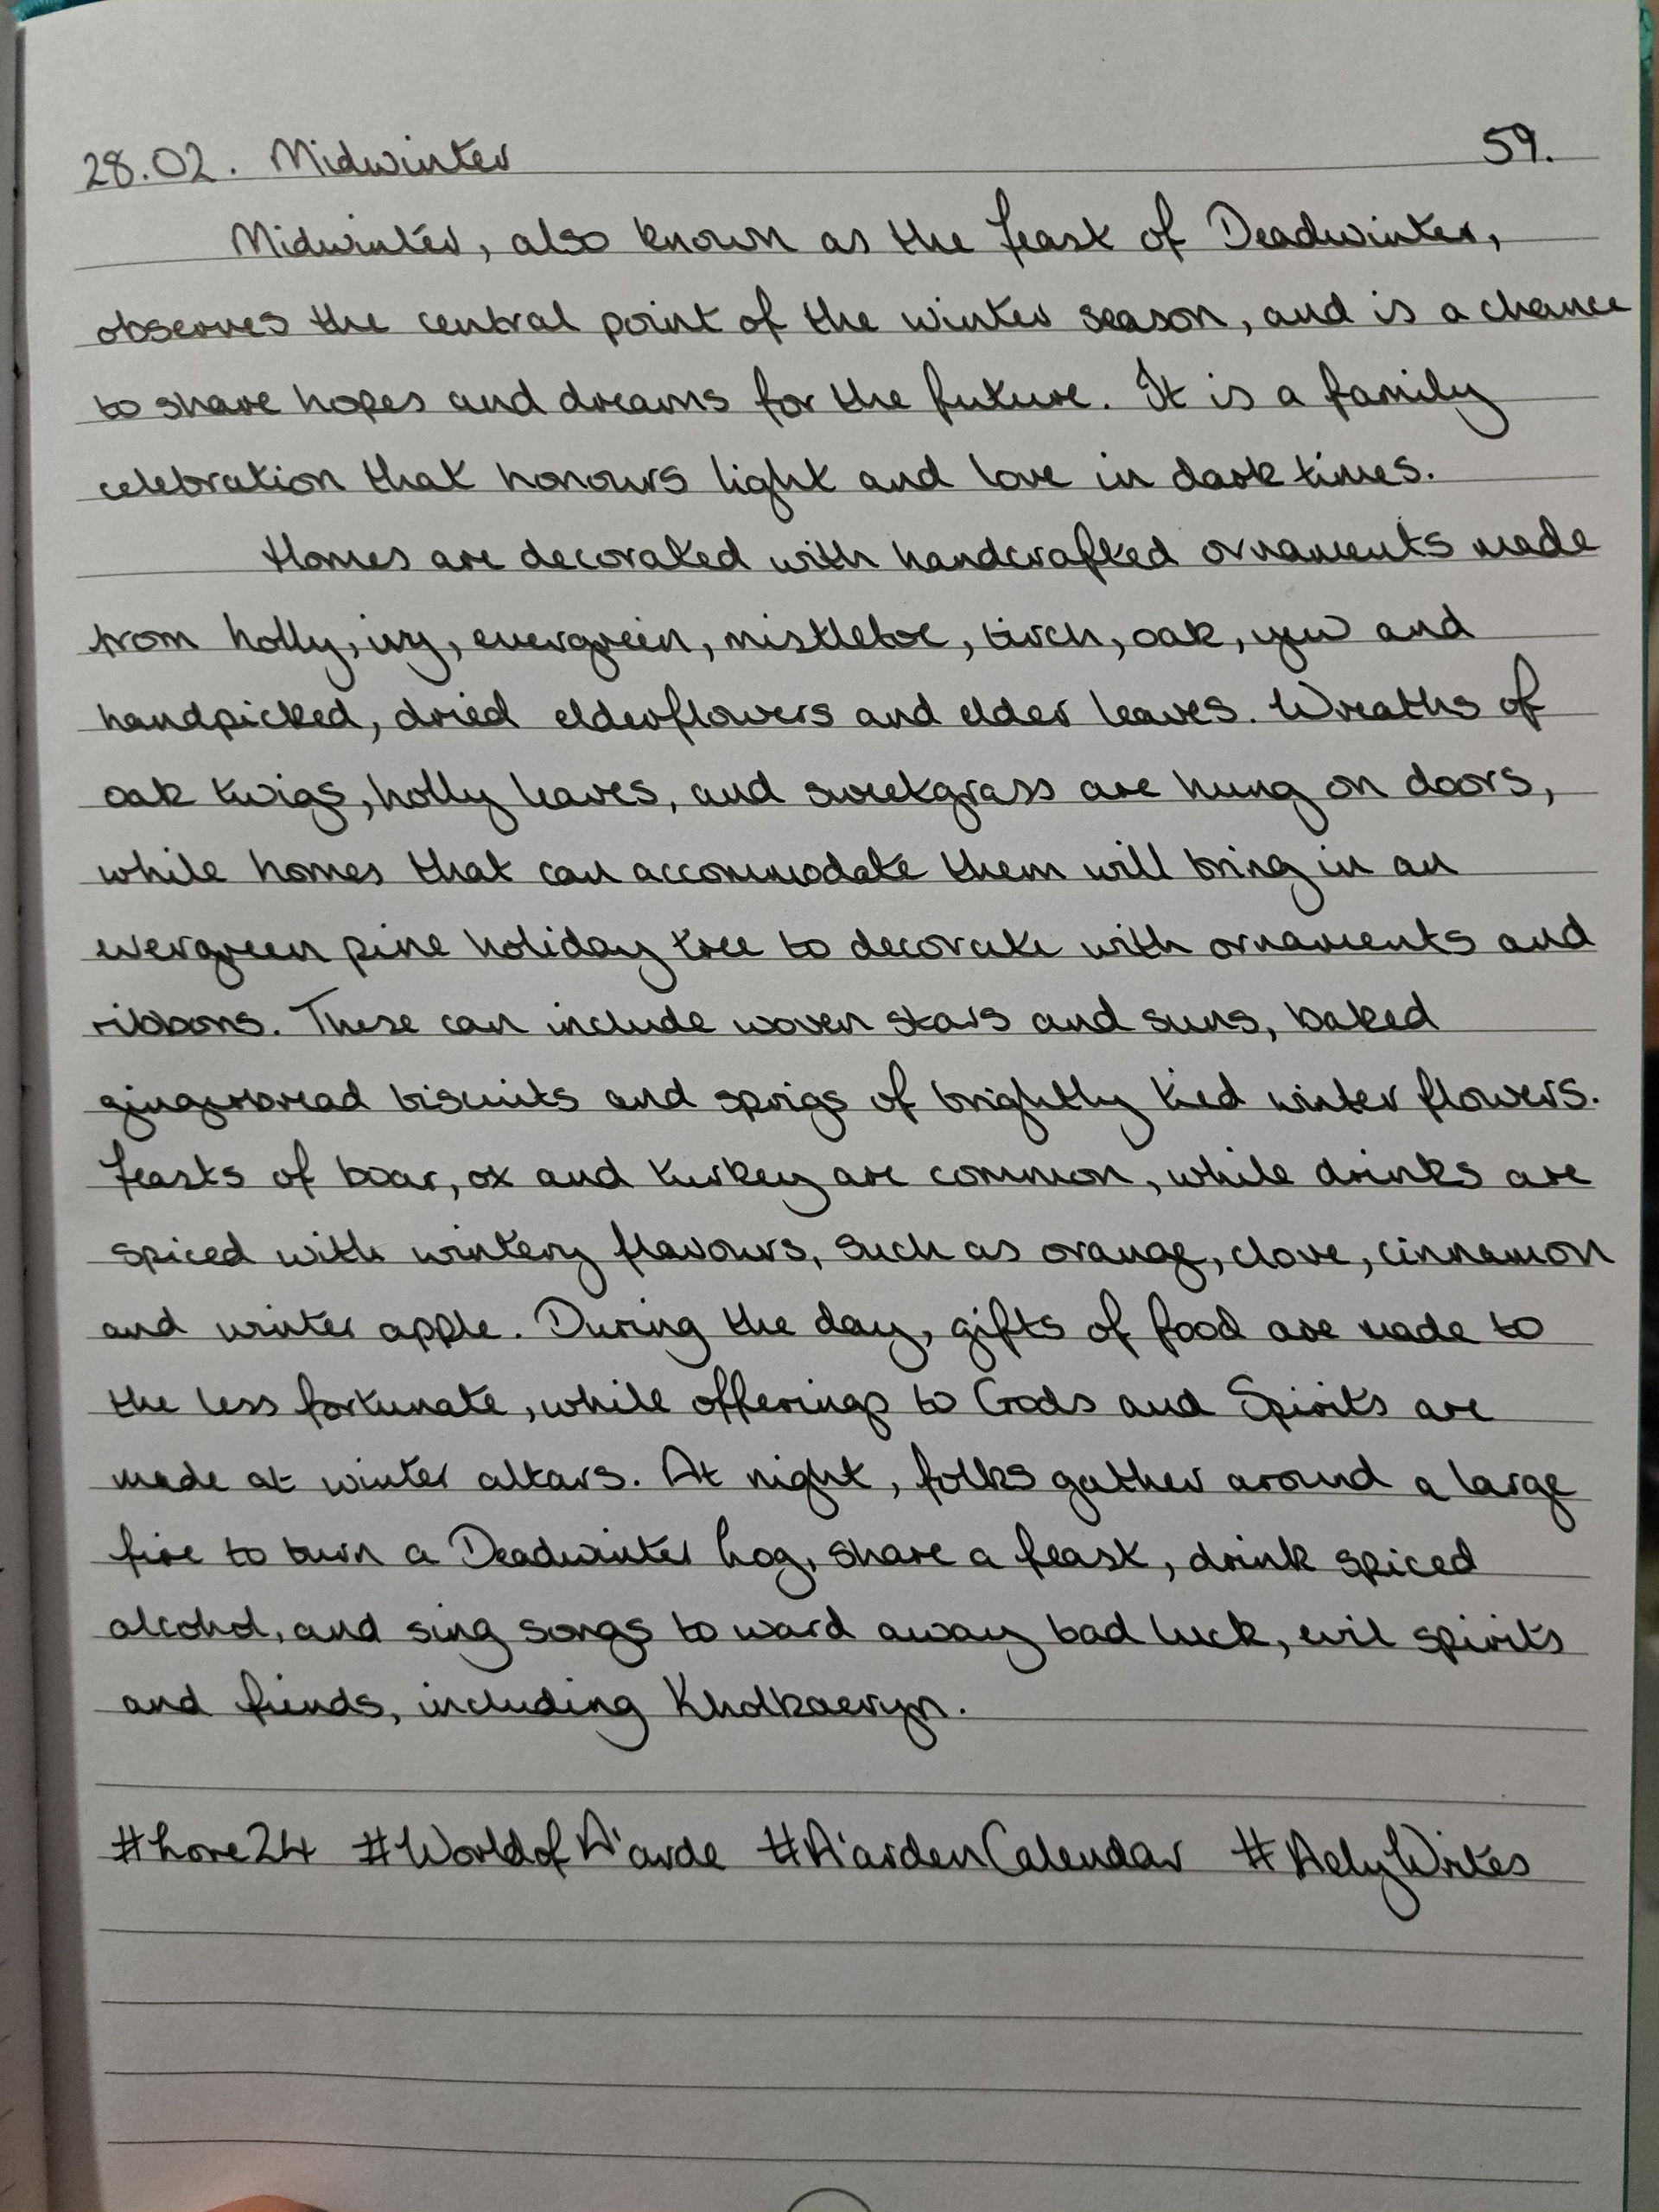 28.02. Midwinter 59.
Midwinter, also known as the Feast of Deadwinter,
observes the central point of the winter season, and is a chance
to share hopes and dreams for the future. It is a family
celebration that honours light and love in dark times.
Homes are decorated with handcrafted ornaments made
from holly, ivy, evergreen, mistletoe, birch, oak, yew and
handpicked, dried elderflowers and elder leaves. Wreaths of
oak twigs, holly leaves, and sweetgrass are hung on doors,
while homes that can accommodate them will bring in an
evergreen pine holiday tree to decorate with ornaments and
ribbons. These can include woven stars and suns, baked
gingerbread biscuits and sprigs of brightly tied winter flowers.
Feasts of boar, ox and turkey are common, while drinks are
spiced with wintery flavours, such as orange, clove, cinnamon
and winter apple. During the day, gifts of food are made to
the less fortunate, while offerings to Gods and Spirits are
made at winter altars. At night, folks gather around a large
fire to burn a Deadwinter Log, share a feast, drink spiced
alcohol, and sing songs to ward away bad luck, evil spirits
and fiends, including Kholkaeryn.
#Lore24 #WorldofA'arde #A'ardenCalendar #AelyWrites